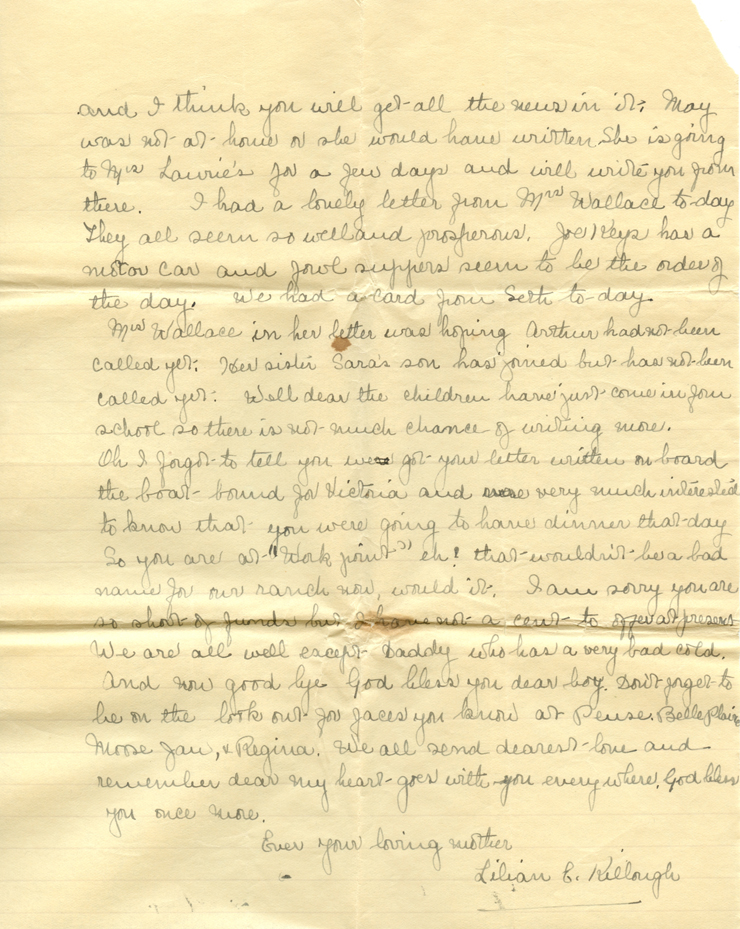 and I think you will get all the news in it. May
was not at home or she would have written. She is going
to Mrs Lawrie's for a few days and will write you from
there. I had a lovely letter from Mrs Wallace to-day
They all seem so well and prosperous. Joe Keys has a
motor car and fowl suppers seem to be the order of
the day. We had a card from Seth to-day.
Mrs Wallace in her letter was hoping Arthur had not been
called yet. Her sister Sara's son has joined but has not been
called yet. Well dear the children have just come in from
school so there is not much chance of writing more.
Oh I forgot to tell you we got your letter written on board
the boat bound for Victoria and were very much interested
to know that you were going to have dinner that day
So you are at "Work point" eh! that wouldn't be a bad
name for our ranch now, would it. I am sorry you are
so short of funds but I have not a cent to offer at present
We are all well except Daddy who has a very bad cold.
And now good bye God bless you dear boy. Don't forget to
be on the look out for faces you know at Pense. Belle Plaine
Moose Jaw, & Regina. We all send dearest love and
remember dear my heart goes with you everywhere. God bless
you once more.
Ever your loving mother
Lilian C. Killough